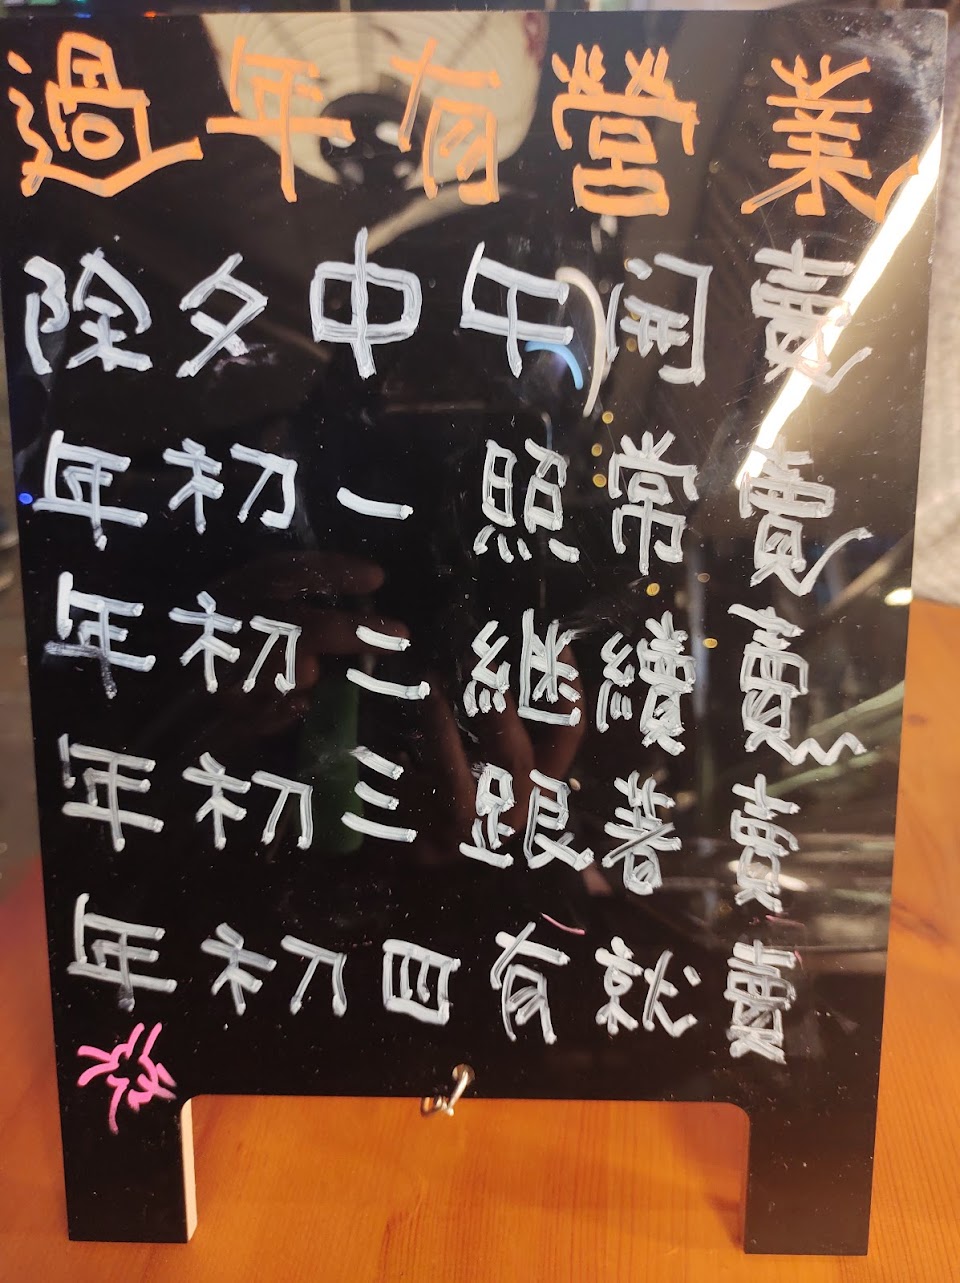 過年有營業
除夕中午開賣
年初一照常賣
年初二繼續賣
年初三跟著賣
年初四有就賣